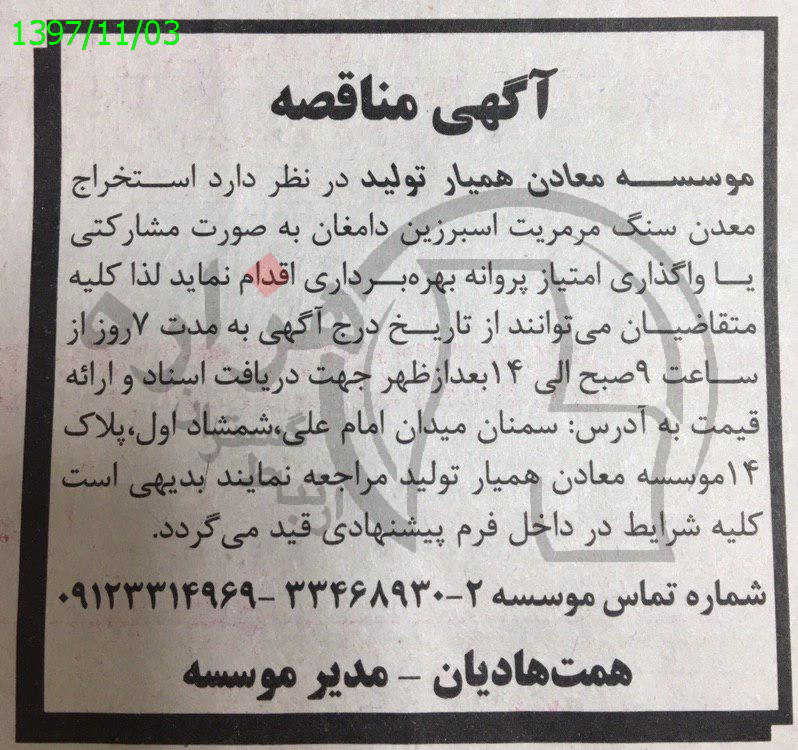 1397/11/03
آگهی مناقصه
موسسه معادن همیار تولید در نظر دارد استخراج
معدن سنگ مرمریت اسبرزین دامغان به صورت مشارکتی
یا واگذاری امتیاز پروانه بهره‌برداری اقدام نماید لذا کلیه
متقاضیان می‌توانند از تاریخ درج آگهی به مدت ۷روز از
ساعت ۹صبح الی ۱۴بعدازظهر جهت دریافت اسناد و ارائه
قیمت به آدرس: سمنان میدان امام علی،شمشاد اول،پلاک
۱۴موسسه معادن همیار تولید مراجعه نمایند بدیهی است
کلیه شرایط در داخل فرم پیشنهادی قید می‌گردد.
شماره تماس موسسه ۲-۳۳۴۶۸۹۳۰ -۰۹۱۲۳۳۱۴۹۶۹
همت‌هادیان - مدیر موسسه
هزاره
گستر